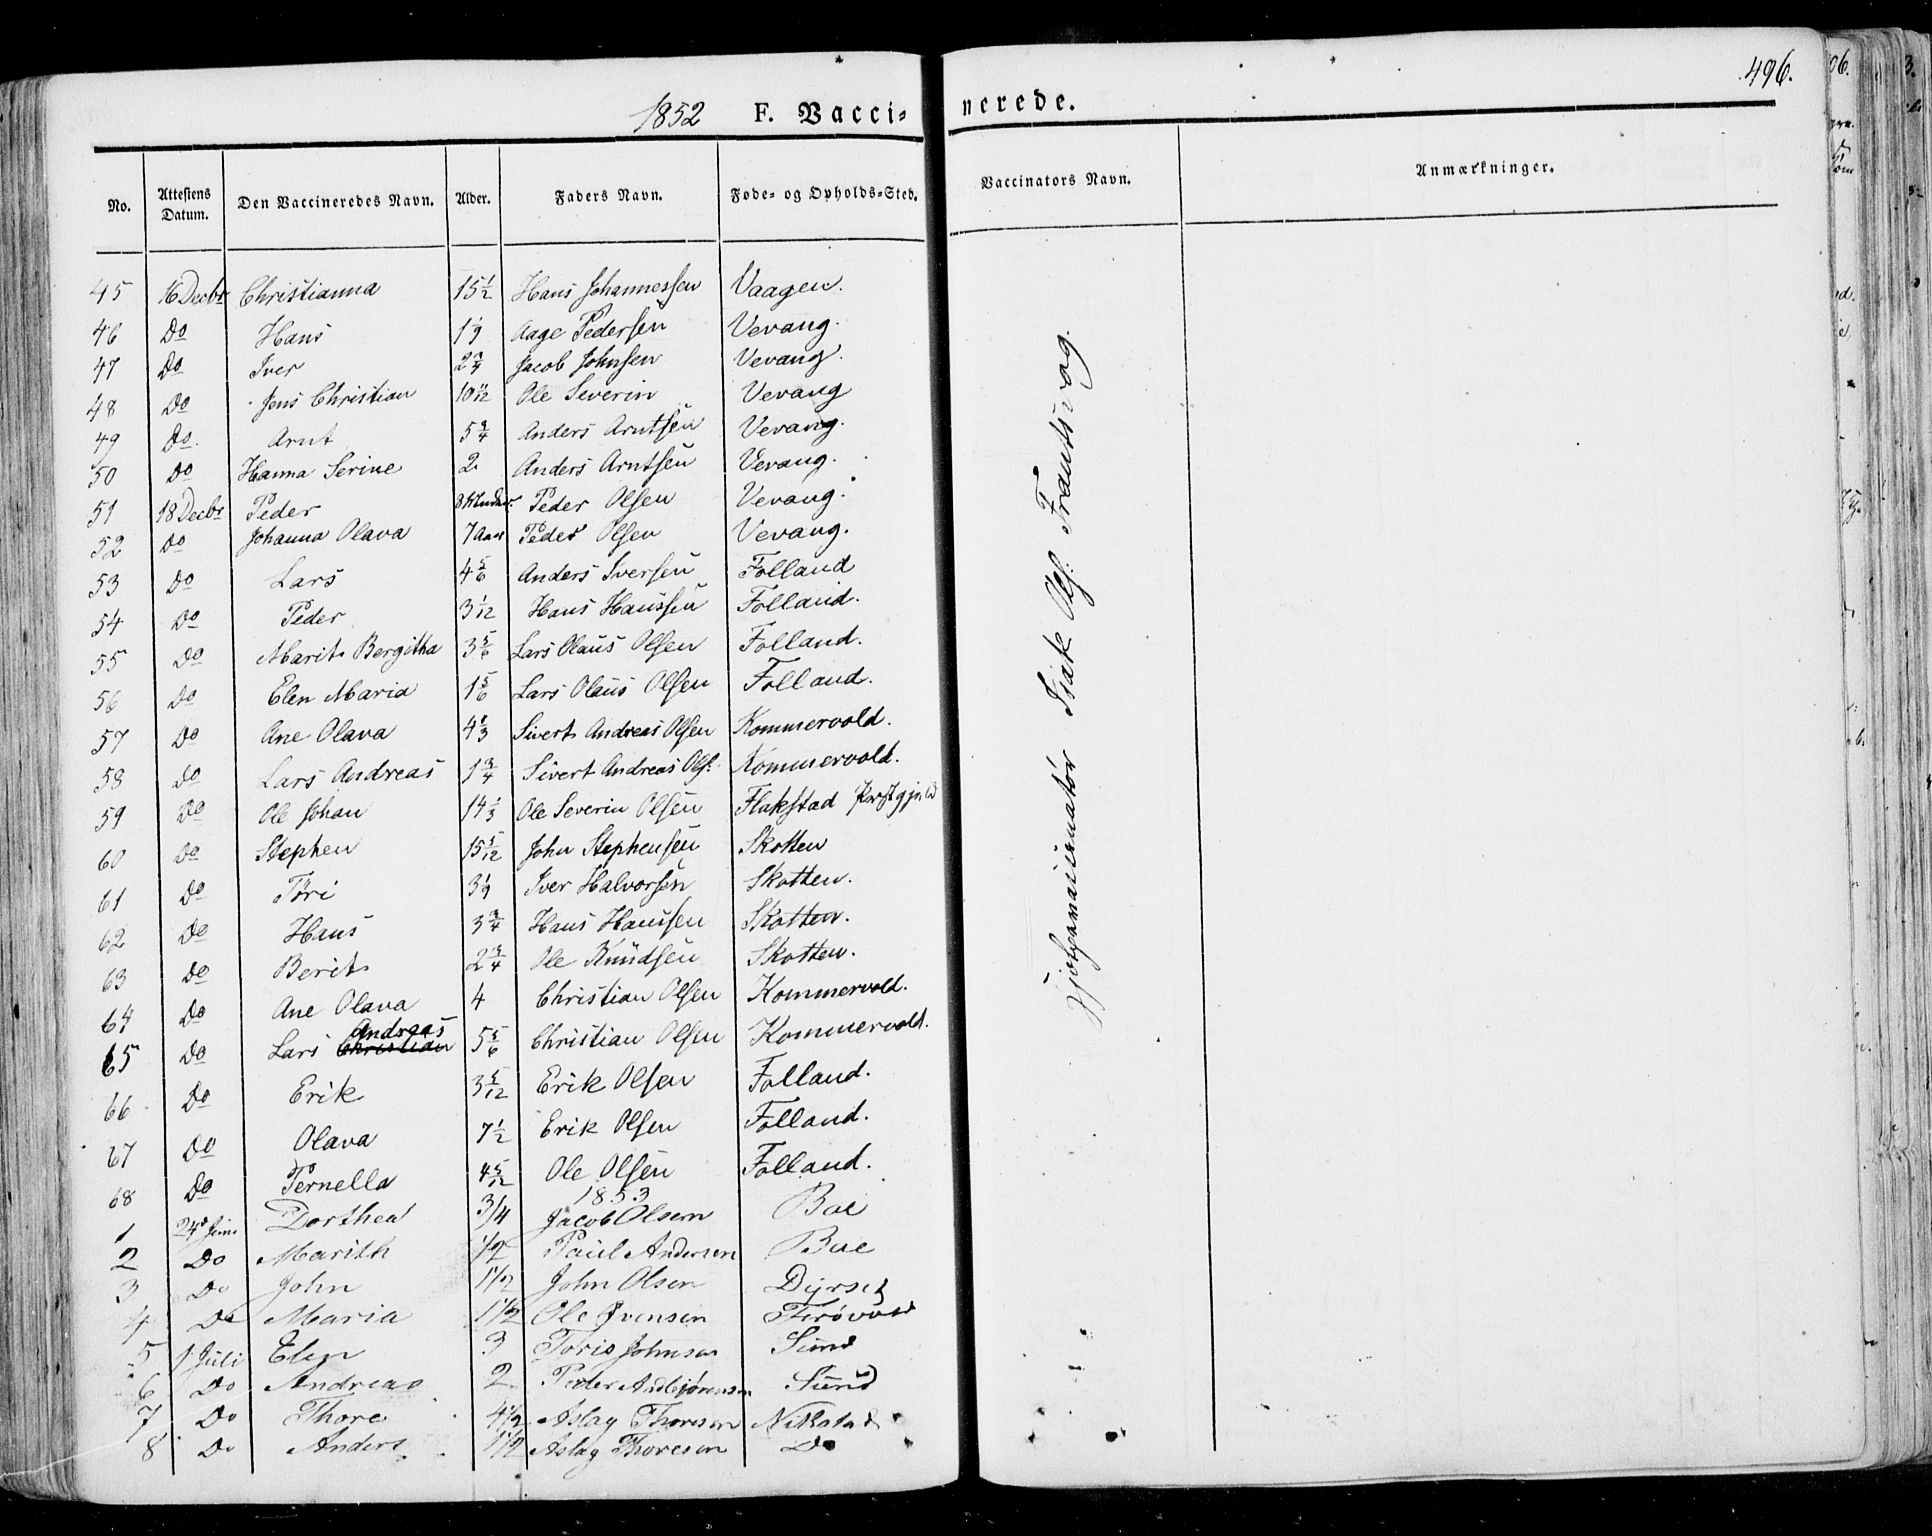 1852 F. Vaccinerede. 496.
No. Attestens Datum. Den Vaccineredes Navn. Alder. Faders Navn. Føde- og Opholds-Sted. Vaccinators Navn. Anmærkninger.
45 16 Decbr Christianna 15 1/2 Hans Johannessen Vaagen.
46 Do Hans 1 1/9 Aage Pedersen Vevang.
47 Do Iver 2 3/4 Jacob Johnsen Vevang.
48 Do Jens Christian 10 11/12 Ole Severin Vevang
49 Do. Arnt 5 3/4 Anders Arntsen Vevang.
50 Do Hanna Serine 2 Anders Arntsen Vevang.
51 18 Decbr Peder 8 Peder Olsen Vevang.
52 Do Johanna Olava 7 Aar Peder Olsen Vevang.
53 Do Lars 4 5/6 Anders Iversen Folland
54 Do Peder 3 1/12 Hans Hanssen Folland.
55 Do Marit Bergitha 3 5/6 Lars Olaus Olsen Folland.
56 Do Elen Maria 1 5/6 Lars Olaus Olsen Folland.
57 Do Ane Olava 4 Sivert Andreas Olsen Kommervold.
58 Do Lars Andreas 1 3/4 Sivert Andreas Ols: Kommervold.
59 Do Ole Johan 14 1/3 Ole Severin Olsen Flakstad Præstgjeld
60 Do Stephen 15 5/12 John Stephensen Skotten
61 Do Töri 3 1/9 Iver Halvorsen Skotten.
62 Do Hans 3 3/4 Hans Hanssen Skotten.
63 Do Berit 2 3/4 Ole Knudsen Skotten.
64 Do Ane Olava 4 Christian Olsen Kommervold.
65 Do Lars Christian Andreas 5 5/6 Christian Olsen Kommervold.
66 Do Erik 3 5/12 Erik Olsen Folland.
67 Do Olava 7 1/2 Erik Olsen Folland.
68 Do Pernella 4 5/12 Ole Olsen Folland.
1853
1 24 Juni Dorthea 3/4 Jacob Olsen Boe
2 Do Marith 1/2 Paul Andersen Boe
3 Do John 1 1/2 John Olsen Dyrset
4 Do Maria 1 1/2 Ole Ivensen
5 1 Juli Elen 3 Toris Johnsen Sund
6 Do Andreas 2 Peder Andbjørensen Sund
7 Do Thore 4 1/2 Aslag Thoresen Nikstad
8 Do Anders 1 1/2 Aslag Thoresen Do
Isak Ols: Frantsvag.